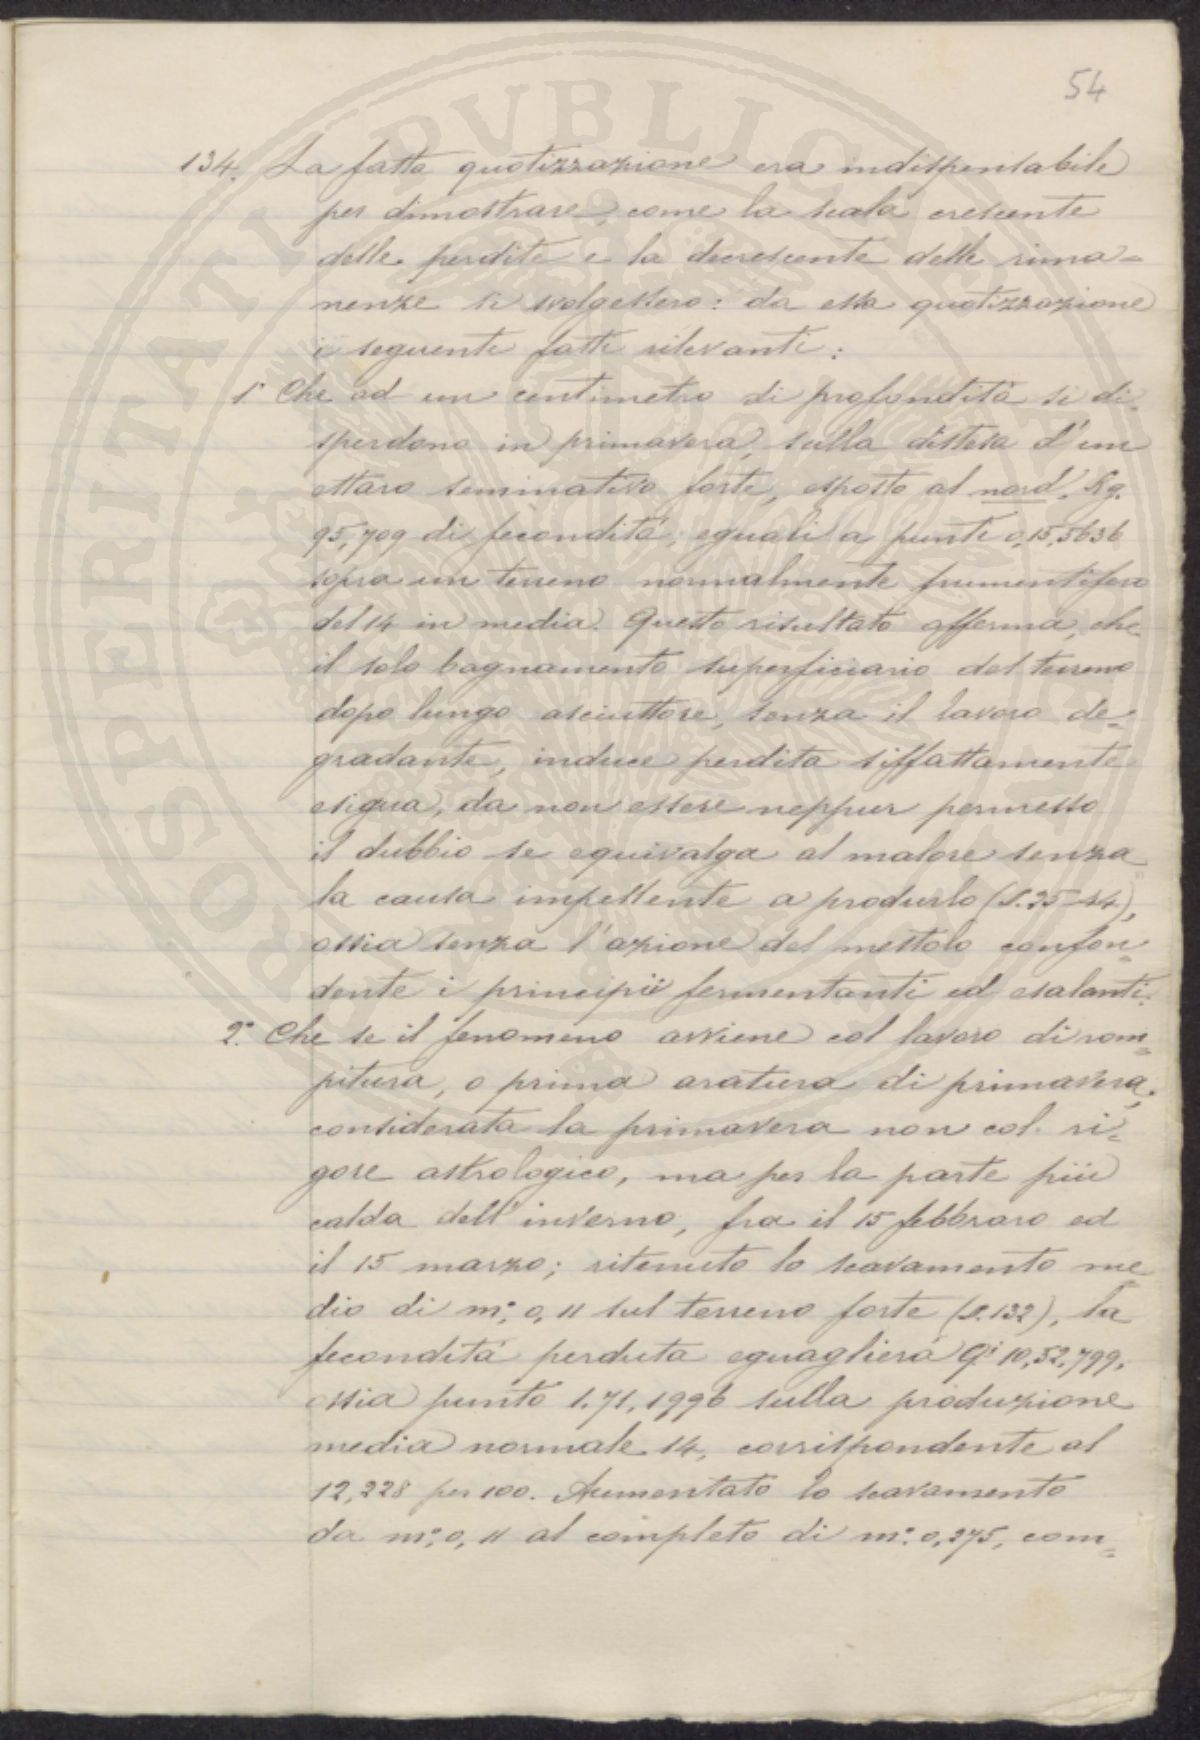 54
134. La fatta quotizzazione era indispensabile
per dimostrare, come la scala crescente
delle perdite e la decrescente delle rima=
nenze si svolgessero: da essa quotizzazione
i seguenti fatti rilevanti:
1° Che ad un centimetro di profondità si di=
sperdono in primavera, sulla distesa d'un
ettaro seminativo forte, esposto al nord, Kg.
95,709 di fecondità, eguali a punti 0,15,5636
sopra un terreno normalmente frumentifero
del 14 in media. Questo risultato afferma, che
il solo bagnamento superficiario del terreno
dopo lungo asciuttore, senza il lavoro de=
gradante, induce perdita siffattamente
esigua, da non essere neppur permesso
il dubbio se equivalga al malore senza
la causa impellente a produrlo (§. 35-44),
ossia senza l'azione del mestolo confon=
dente i principii fermentanti ed esalanti.
2° Che se il fenomeno avviene col lavoro di rom=
pitura, o prima aratura di primavera,
considerata la primavera non col ri=
gore astrologico, ma per la parte più
calda dell'inverno, fra il 15 febbraro ed
il 15 marzo; ritenuto lo scavamento me=
dio di m° 0,11 sul terreno forte (§. 132), la
fecondità perduta eguaglierà Qi 10,52,799,
ossia punto 1.71,1996 sulla produzione
media normale 14, corrispondente al
12,228 per 100. Aumentato lo scavamento
da m° 0,11 al completo di m° 0,275, com=
PROSPERITATI PVBLICAE